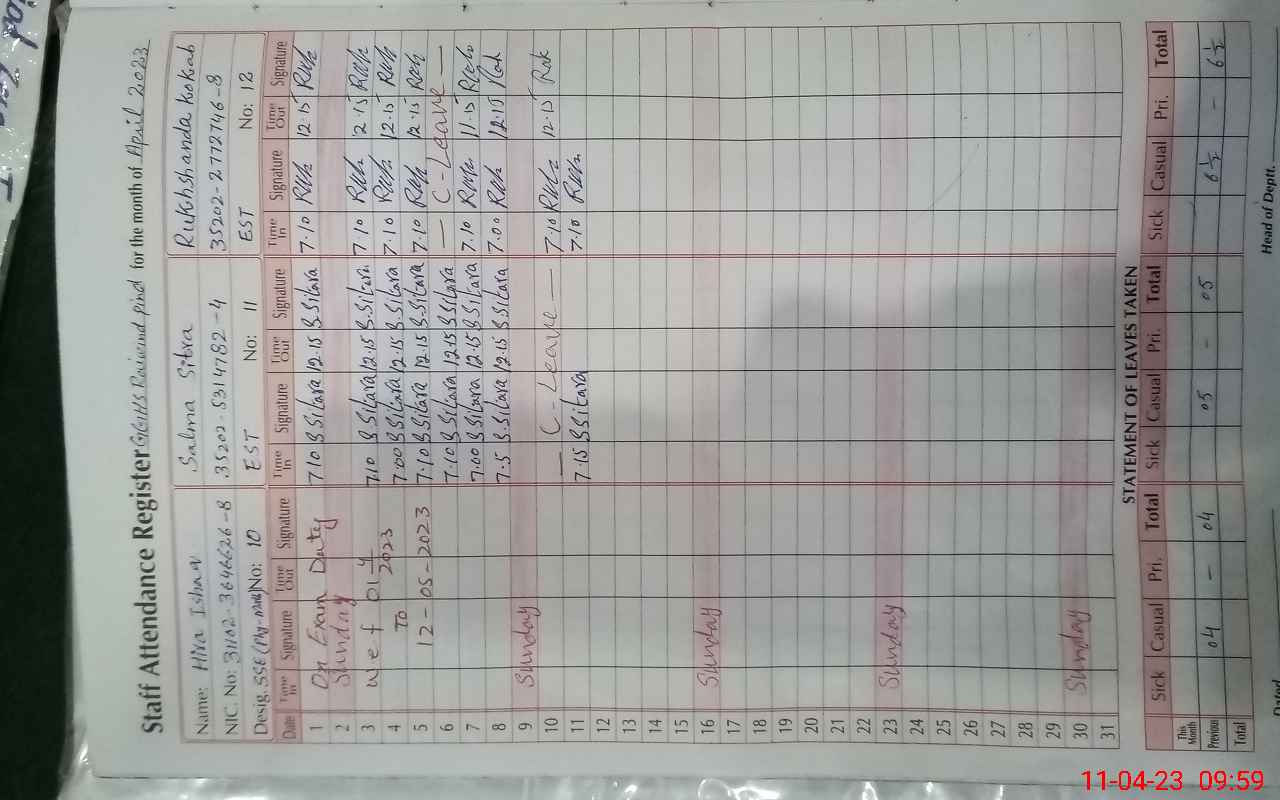 Staff Attendance Register GGHS Raiwind pind for the month of April 2023
Name: Hira Ishaq Salma Sitra Rukhshanda Kokab
NIC. No: 31102-3646626-8 35202-5314782-4 35202-2772746-8
Desig. SSE (Phy-Math) No: 10 EST No: 11 EST No: 12
Date Time In Signature Time Out Signature Time In Signature Time Out Signature Time In Signature Time Out Signature
1 On Exam Duty 7.10 B.Sitara 12.15 B.Sitara 7.10 Ruk 12.15 Ruk
2 Sunday
3 w e f 01 4 2023 7.10 B.Sitara 12.15 B.Sitara 7.10 Ruk 12.15 Ruk
4 To 7.00 B.Sitara 12.15 B.Sitara 7.10 Ruk 12.15 Ruk
5 12-05-2023 7.10 B.Sitara 12.15 B.Sitara 7.10 Ruk 12.15 Ruk
6 7.10 B.Sitara 12.15 B.Sitara — C-Leave —
7 7.00 B.Sitara 12.15 B.Sitara 7.10 Ruk 11.15 Ruk
8 7.5 B.Sitara 12.15 B.Sitara 7.00 Ruk 12.15 Ruk
9 Sunday
10 — C-Leave — 7.10 Ruk 12.15 Ruk
11 7.15 B.Sitara 7.10 Ruk
12
13
14
15
16 Sunday
17
18
19
20
21
22
23 Sunday
24
25
26
27
28
29
30 Sunday
31
STATEMENT OF LEAVES TAKEN
Sick Casual Pri. Total Sick Casual Pri. Total Sick Casual Pri. Total
This Month
Previous 04 - 04 05 - 05 6½ - 6½
Total
Dated
Head of Deptt.
11-04-23 09:59